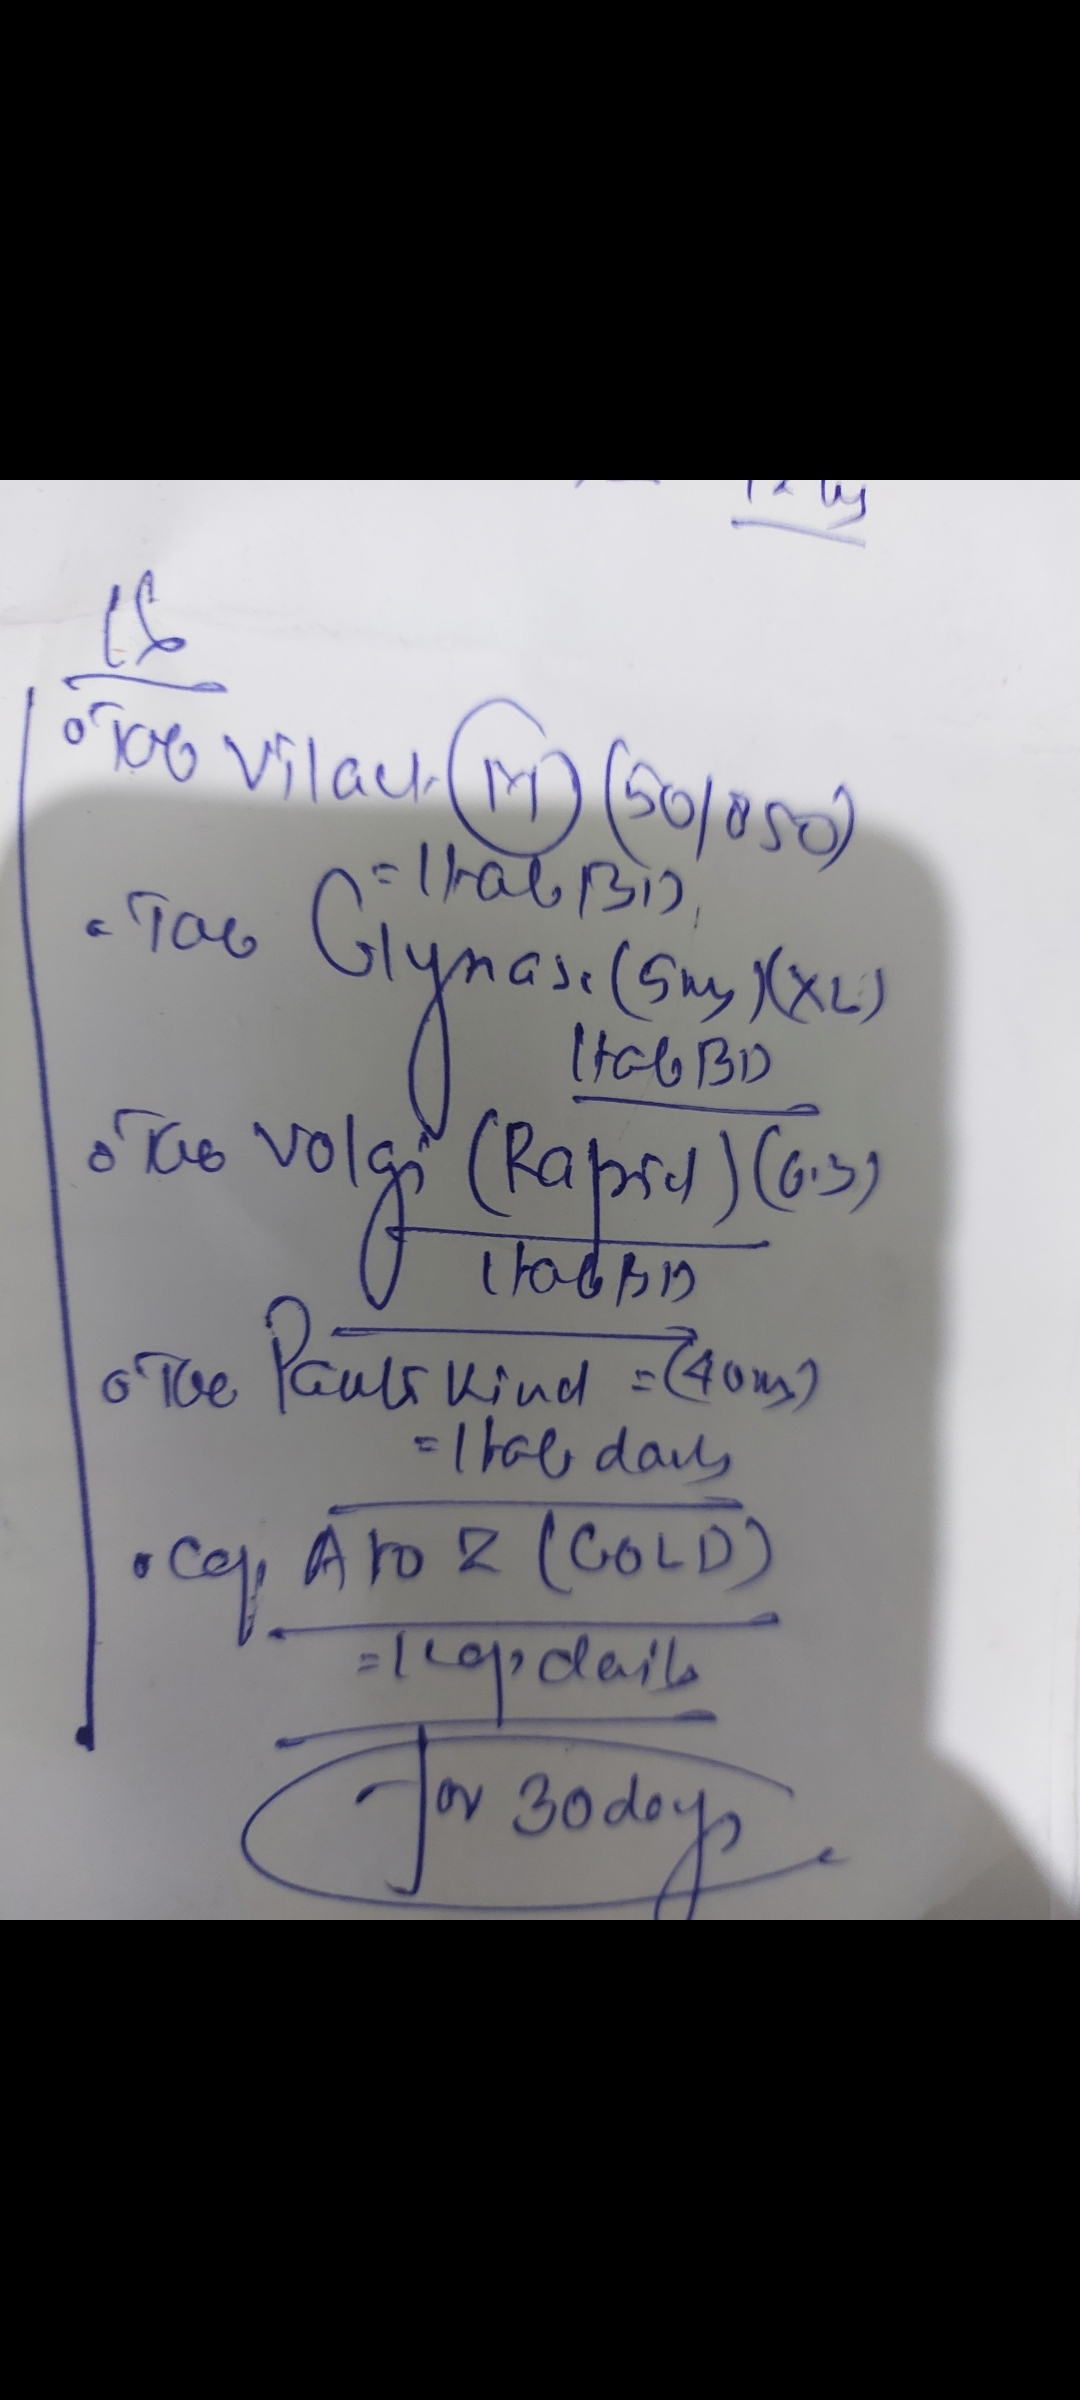 Rx
Tab Vilact (M) (50/850)
=1tab BD
Tab Glynase (5mg) (XL)
1tab BD
Tab Volgi (Rapid) (0.3)
1tab BD
Tab Kind =(40mg)
=1tab daily
Cap A to Z (GOLD)
=1cap daily
for 30days